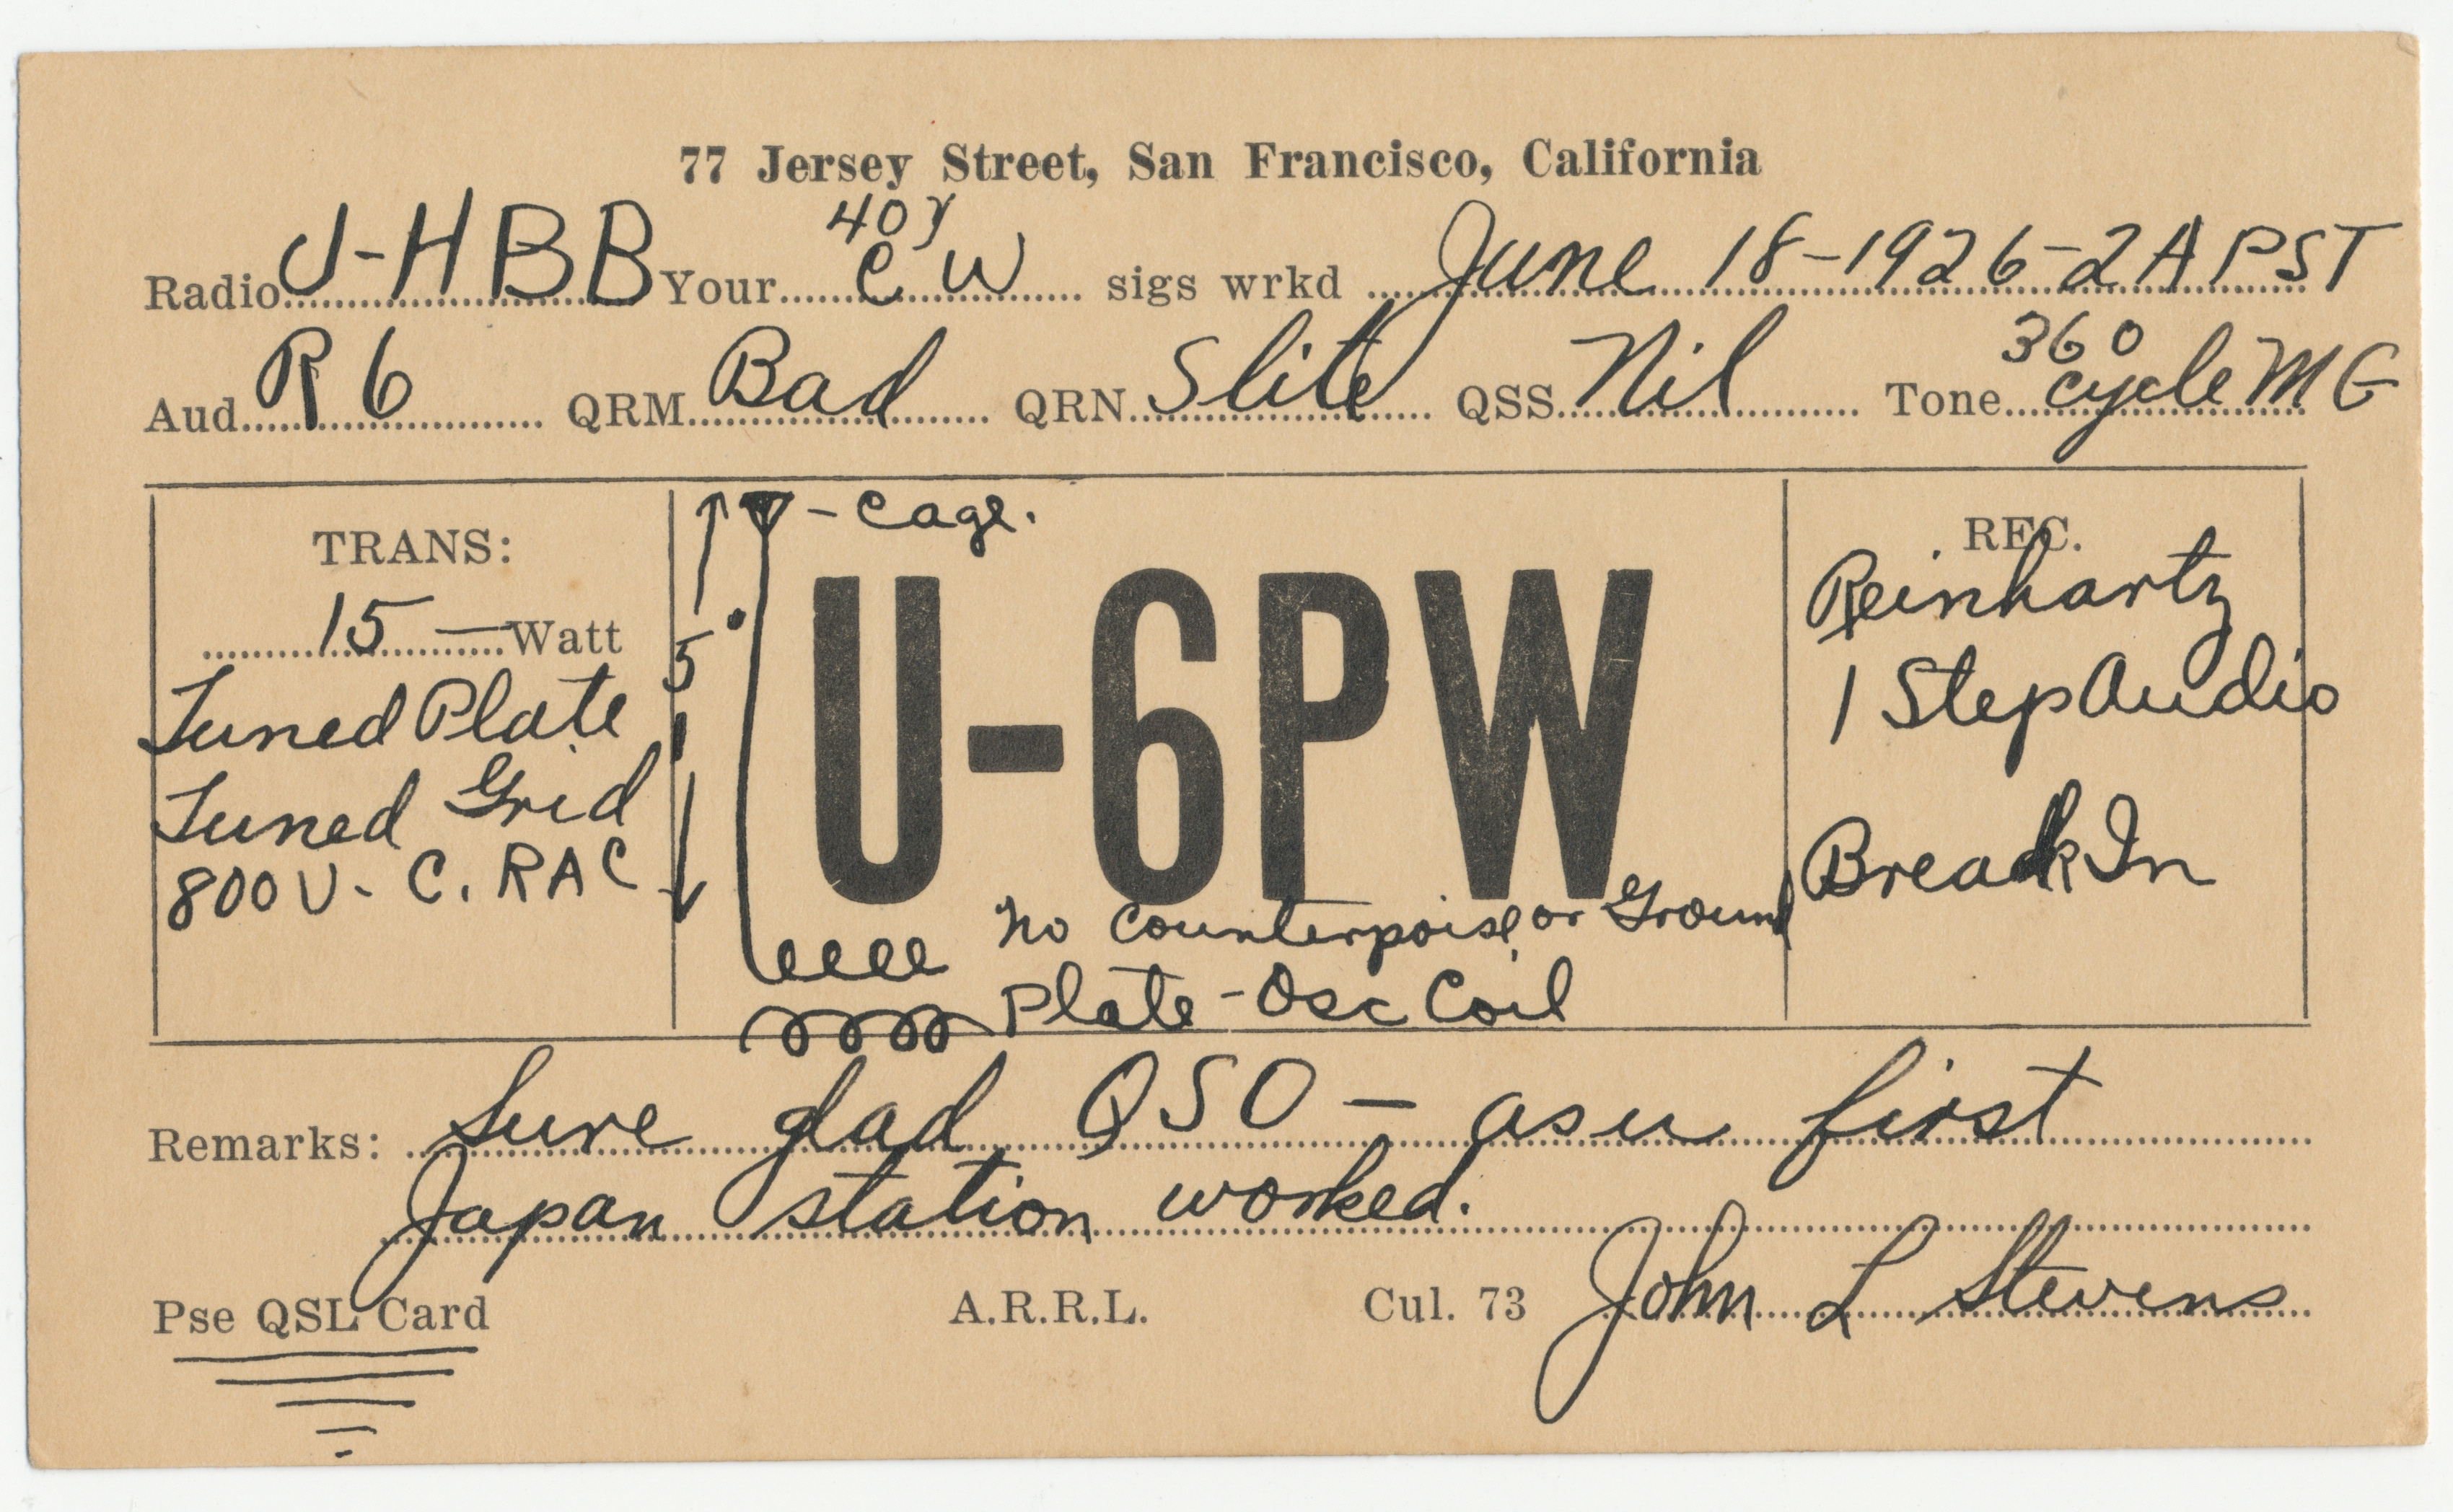 77 Jersey Street, San Francisco, California
40 y
Radio J-HBB Your CW sigs wrkd June 18-1926-2A PST
360
Aud. R 6 QRM. Bad QRN. Slite QSS. Nil Tone cycle MG
- Cage.
TRANS:
15 — Watt
Tuned Plate
Tuned Grid
800 V- C. RAC
5'
U-6PW
No Counterpoise or Ground
Plate-Osc Coil
REC.
Reinhartz
1 Step Audio
Break In
Remarks: Sure glad QSO - as u first
Japan station worked.
Pse QSL Card A.R.R.L. Cul. 73 John L Stevens